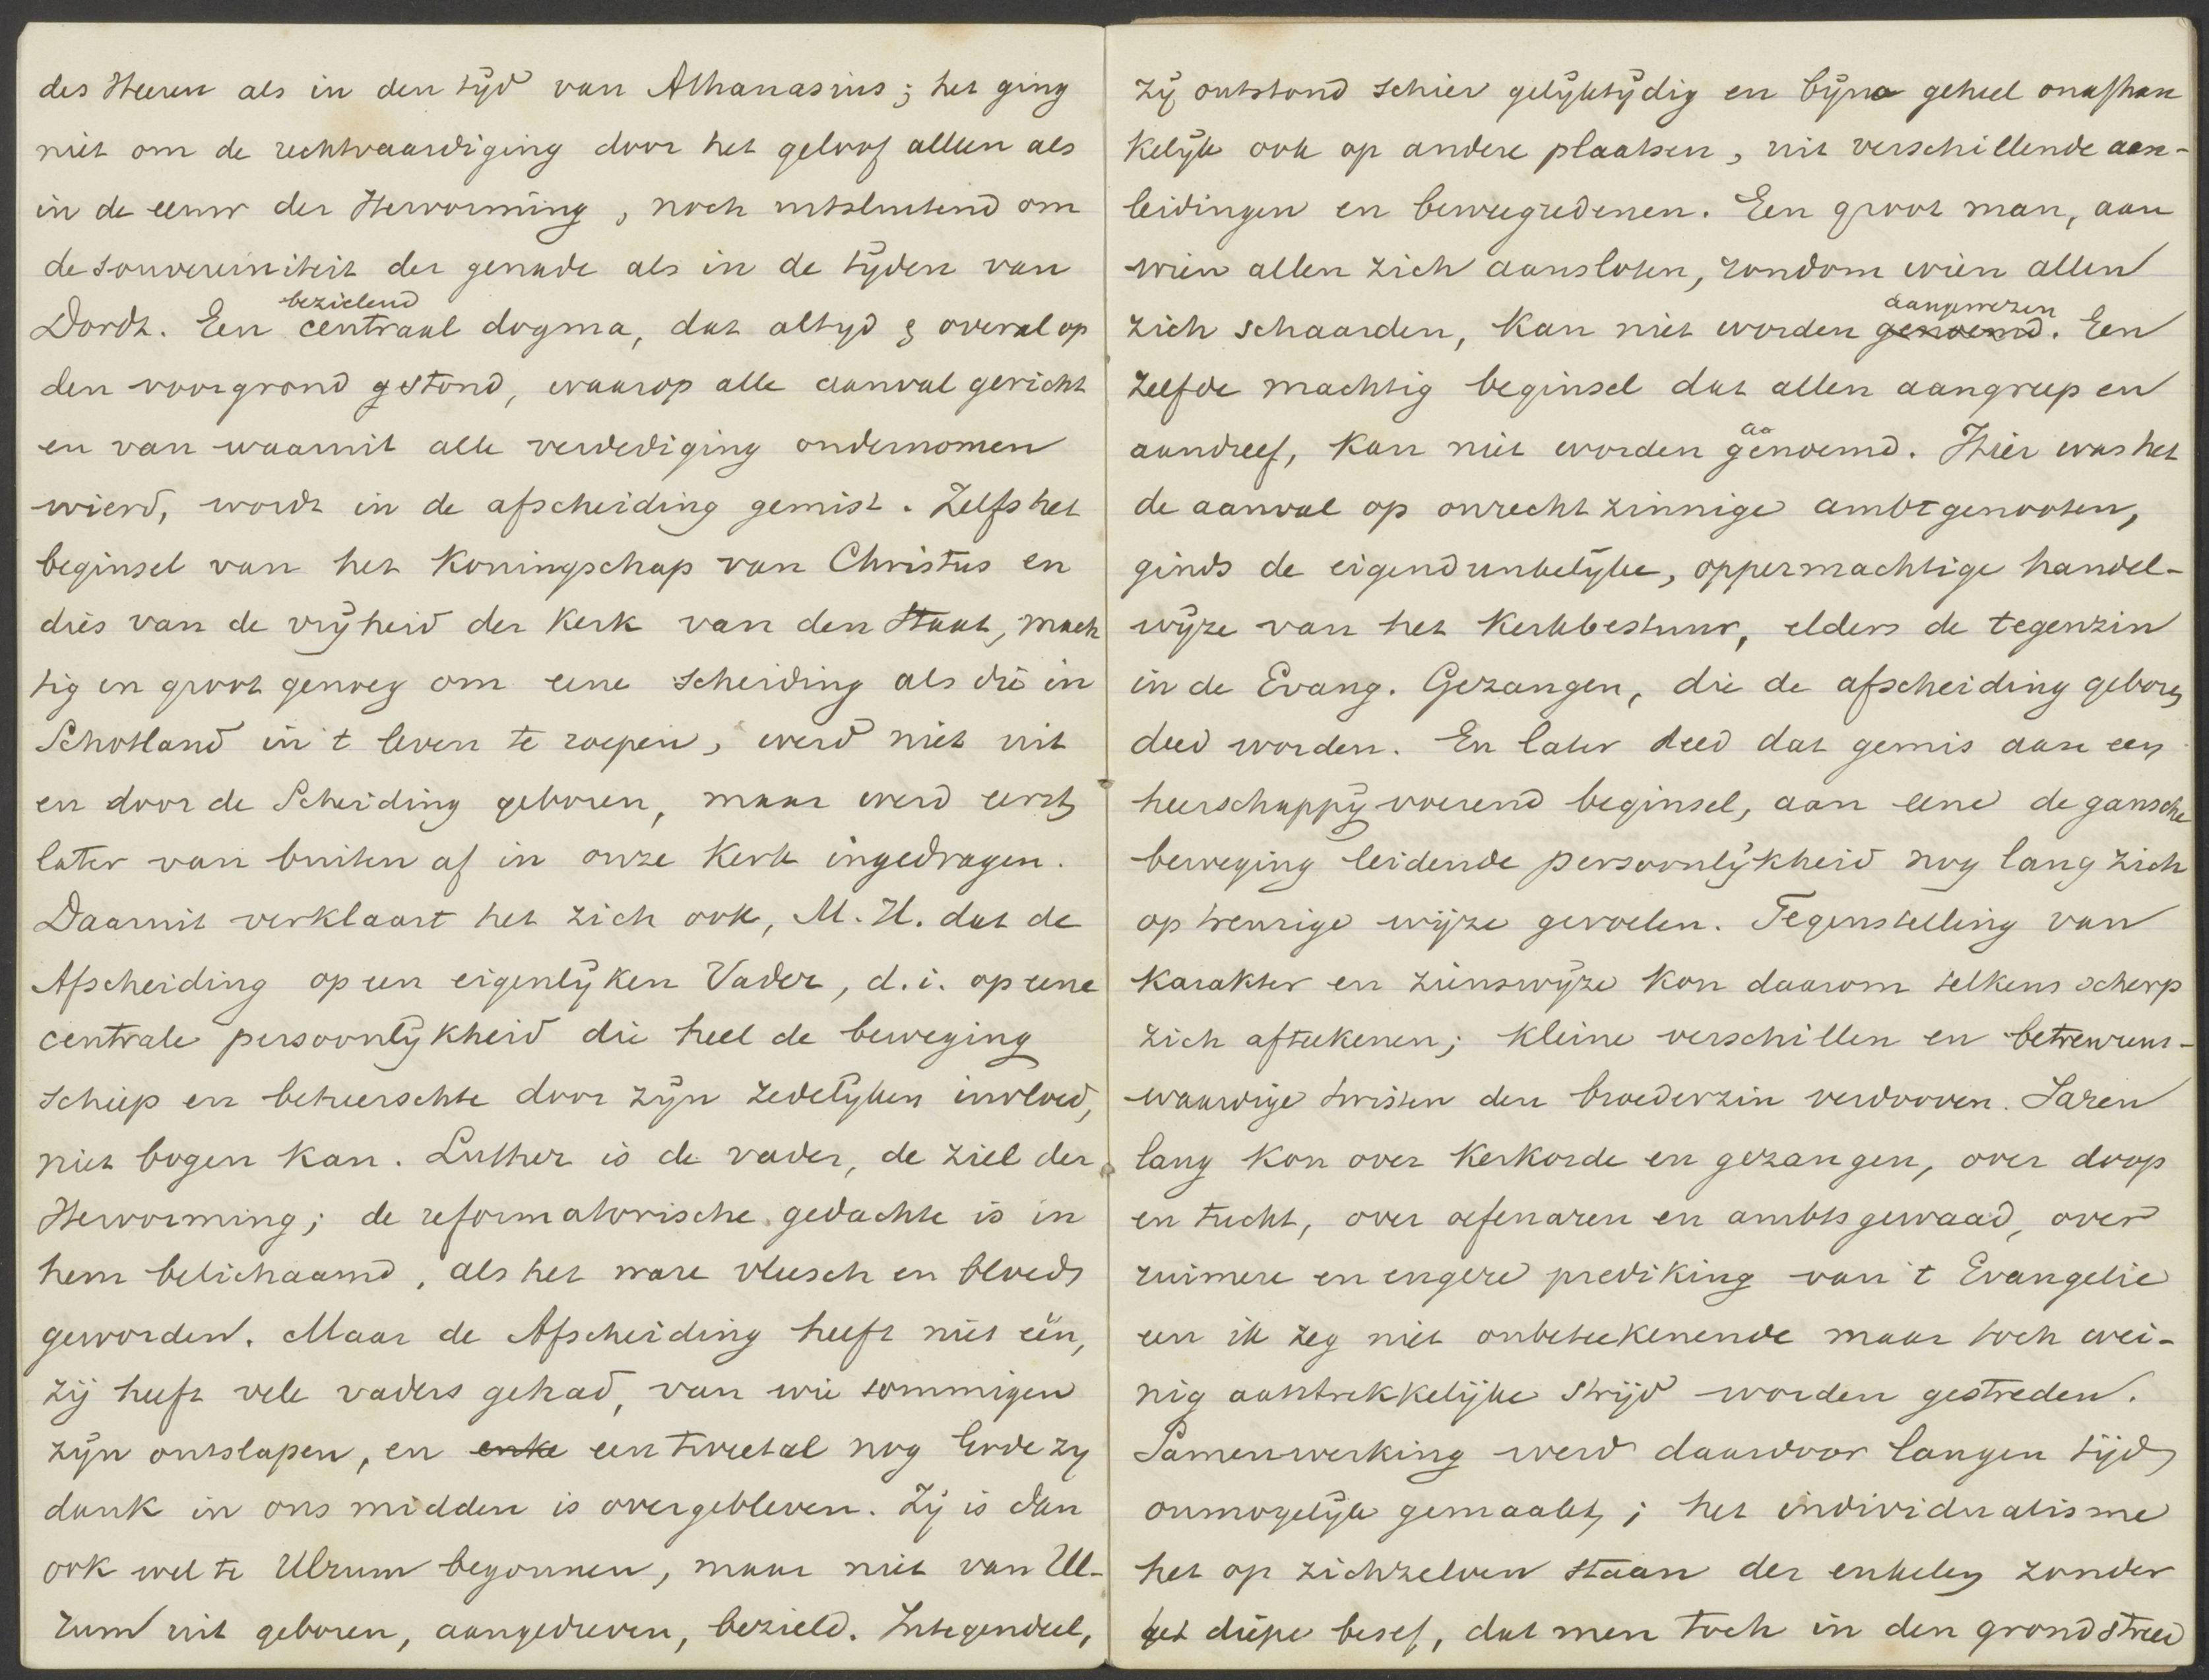 des Heeren als in den tyd van Athanasius; het ging
niet om de rechtvaardiging door het geloof alleen als
in de eeuw der Hervorming, noch uitsluitend om
de souvereiniteit der genade als in de tyden van
bezielend
Dordt. Een centraal dogma, dat altyd & overal op
den voorgrond gestond, waarop alle aanval gericht
en van waaruit alle verdediging ondernomen
wierd, wordt in de afscheiding gemist. Zelfs het
beginsel van het Koningschap van Christus en
dies van de vryheid der Kerk van den Staat, mach
tig en groot genoeg om eene scheiding als die in
Schotland in 't leven te roepen, werd niet uit
en door de Scheiding geboren, maar werd eerst
later van buiten af in onze Kerk ingedragen.
Daaruit verklaart het zich ook, M. H. dat de
Afscheiding op een eigenlyken Vader, d.i. op eene
centrale persoonlykheid die heel de beweging
schiep en beheerschte door zyn zedelyken invloed,
niet bogen kan. Luther is de vader, de ziel der
Hervorming; de reformatorische gedachte is in
hem belichaamd, als het ware vleesch en bloeds
geworden. Maar de Afscheiding heeft niet één,
zij heeft vele vaders gehad, van wie sommigen
zyn ontslapen, en enke een tweetal nog Gode zy
dank in ons midden is overgebleven. Zy is dan
ook wel te Ulrum begonnen, maar niet van Ul-
rum uit geboren, aangedreven, bezield. Integendeel,
Zy ontstond schier gelyktydig en byna geheel onafhan
kelyk ook op andere plaatsen, uit verschillende aan-
leidingen en beweegredenen. Een groot man, aan
wien allen zich aansloten, rondom wien allen
aangewezen
zich schaarden, kan niet worden genoemd. Een
zelfde machtig beginsel dat allen aangreep en
aa
aandreef, kan niet worden genoemd. Hier was het
de aanval op onrechtzinnige ambtgenooten,
ginds de eigendunkelyke, oppermachtige handel-
wyze van het Kerkbestuur, elders de tegenzin
in de Evang. Gezangen, die de afscheiding geboren
deed worden. En later deed dat gemis aan een
heerschappy voerend beginsel, aan eene de gansche
beweging leidende persoonlykheid nog lang zich
op treurige wijze gevoelen. Tegenstelling van
karakter en zienswyze kon daarom telkens scherp
zich afteekenen; kleine verschillen en betreurens-
waardige twisten den broederzin verdooven. Jaren
lang kon over Kerkorde en gezangen, over doop
en tucht, over oefenaren en ambtsgewaad, over
ruimere en engere prediking van 't Evangelie
een ik zeg niet onbeteekenende maar toch wei-
nig aantrekkelijke strijd worden gestreden.
Samenwerking werd daardoor langen tijd
onmogelyk gemaakt; het individualisme
het op zichzelven staan der enkelen zonder
het diepe besef, dat men toch in den grond streed